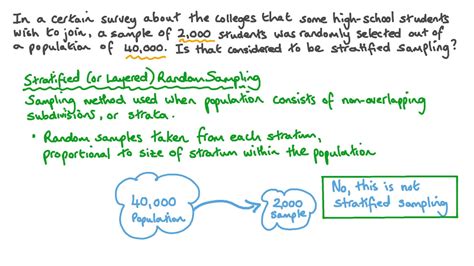 In a certain survey about the colleges that some high-school students
wish to join, a sample of 2,000 students was randomly selected out of
a population of 40,000. Is that considered to be stratified sampling?
Stratified (or Layered) Random Sampling
Sampling method used when population consists of non-overlapping
subdivisions, or strata.
• Random samples taken from each stratum,
proportional to size of stratum within the population
40,000
Population
2,000
Sample
No, this is not
stratified sampling